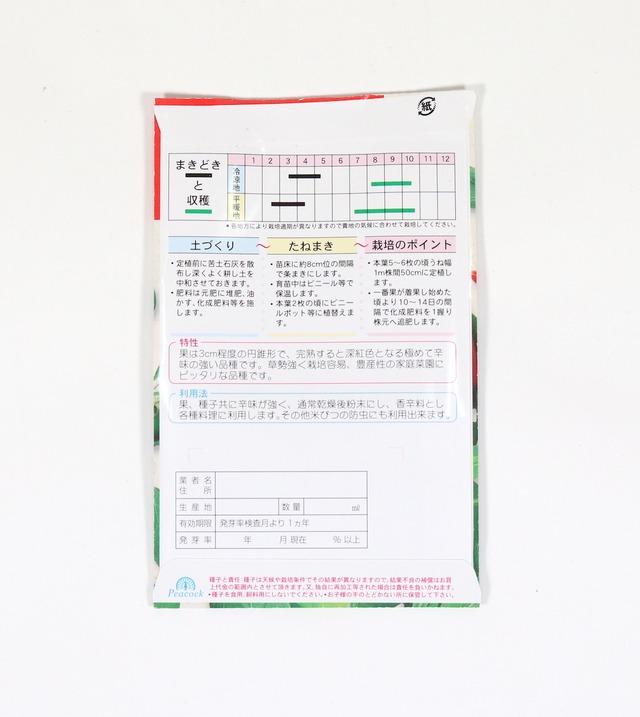 紙
まきどき
と
収穫
1 2 3 4 5 6 7 8 9 10 11 12
冷涼地
平暖地
•各地方により栽培適期が異なりますので貴地の気候に合わせて栽培してください。
土づくり 〜 たねまき 〜 栽培のポイント
•定植前に苦土石灰を散
布し深くよく耕し土を
中和させておきます。
•肥料は元肥に堆肥、油
かす、化成肥料等を施
します。
•苗床に約8cm位の間隔
で条まきにします。
•育苗中はビニール等で
保温します。
•本葉2枚の頃にビニー
ルポット等に植替えま
す。
•本葉5〜6枚の頃うね幅
1m株間50cmに定植し
ます。
•一番果が着果し始めた
頃より10〜14日の間
隔で化成肥料を1握り
株元へ追肥します。
特性
果は3cm程度の円錐形で、完熟すると深紅色となる極めて辛
味の強い品種です。草勢強く栽培容易、豊産性の家庭菜園に
ピッタリな品種です。
利用法
果、種子共に辛味が強く、通常乾燥後粉末にし、香辛料とし
各種料理に利用します。その他米びつの防虫にも利用出来ます。
業者名
住所
生産地 数量 ml
有効期限 発芽率検査月より1ヵ年
発芽率 年 月現在 %以上
Peacock
種子と責任･種子は天候や栽培条件でその結果が異なりますので、結果不良の補償はお買
上代金の範囲内とさせて頂きます。又、独自に再加工等された場合は責任を負いかねます。
•種子を食用、飼料用にしないでください。•お子様の手のとどかない所に保管して下さい。